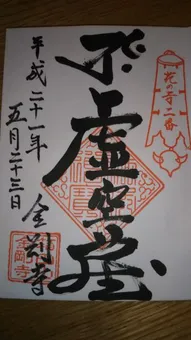 花の寺二番
虚空蔵
平成二十一年
五月二十三日
金剛寺
金剛寺